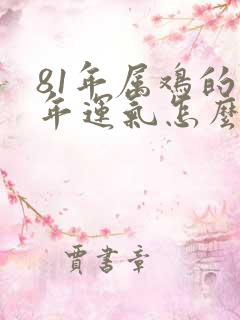 81年属鸡的
年運氣怎麼
賈書章